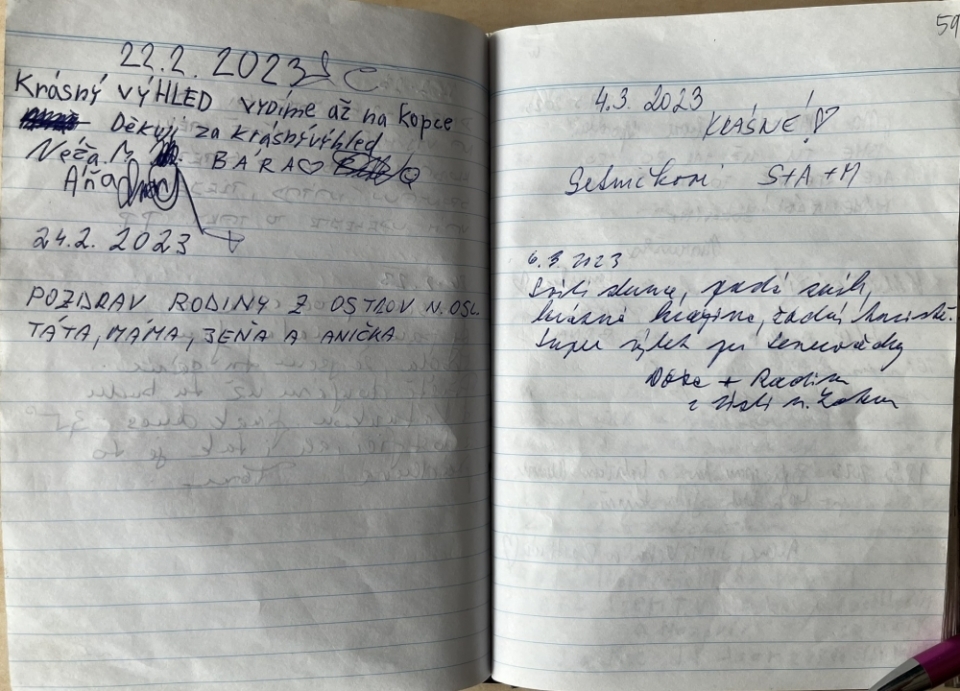 22.2. 2023
Krásný VÝHLED vydíme až na kopce
Děkuji za krásný výhled
Něža.M BÁRA♡
Aňa
24.2. 2023
POZDRAV RODINY Z OSTROV N. OSL.
TÁTA, MÁMA, JENA A ANIČKA
59
4.3. 2023
KRÁSNÉ!♡
S+A+M
6.3. 2023
Svítí slunce, padá sníh,
krásná krajina, žádní turisté.
Super výlet
+ Radim